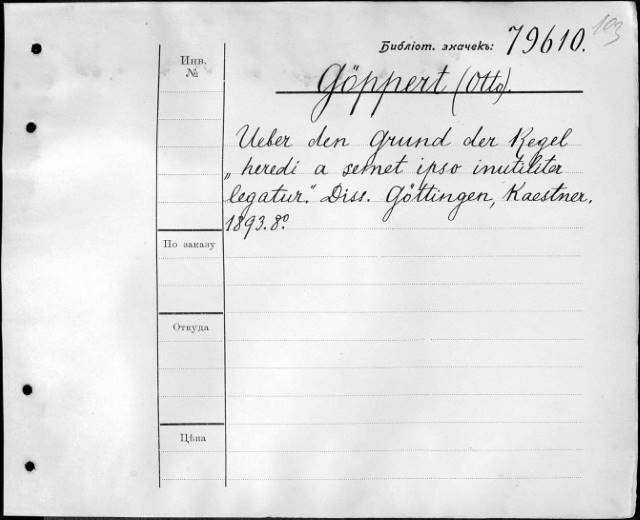 193
Библіот. значекъ: 79610.
Инв.
№
Göppert (Otto).
Ueber den Grund der Regel
„heredi a semet ipso inutiliter
legatur." Diss. Göttingen, Kaestner.
1893. 8º.
По заказу
Откуда
Цѣна